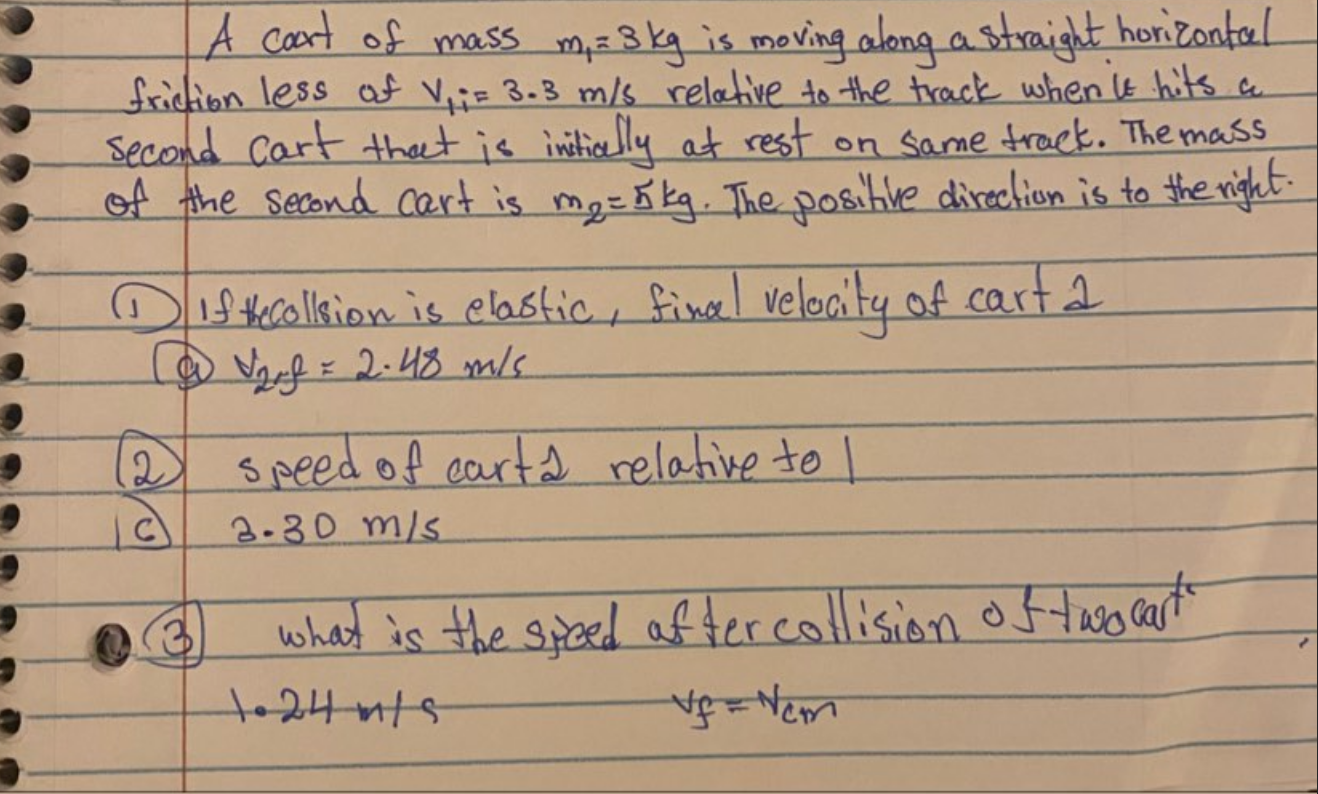 A cart of mass m₁= 3kg is moving along a straight horizontal
friction less of V₁ᵢ= 3.3 m/s relative to the track when it hits a
second cart that is initially at rest on same track. The mass
of the second cart is m₂=5kg. The positive direction is to the right.
① If the collsion is elastic, final velocity of cart 2
ⓐ V₂f = 2.48 m/s
② speed of cart 2 relative to 1
ⓒ 3.30 m/s
③ what is the speed after collision of two cart
1.24 m/s Vf = Vcm